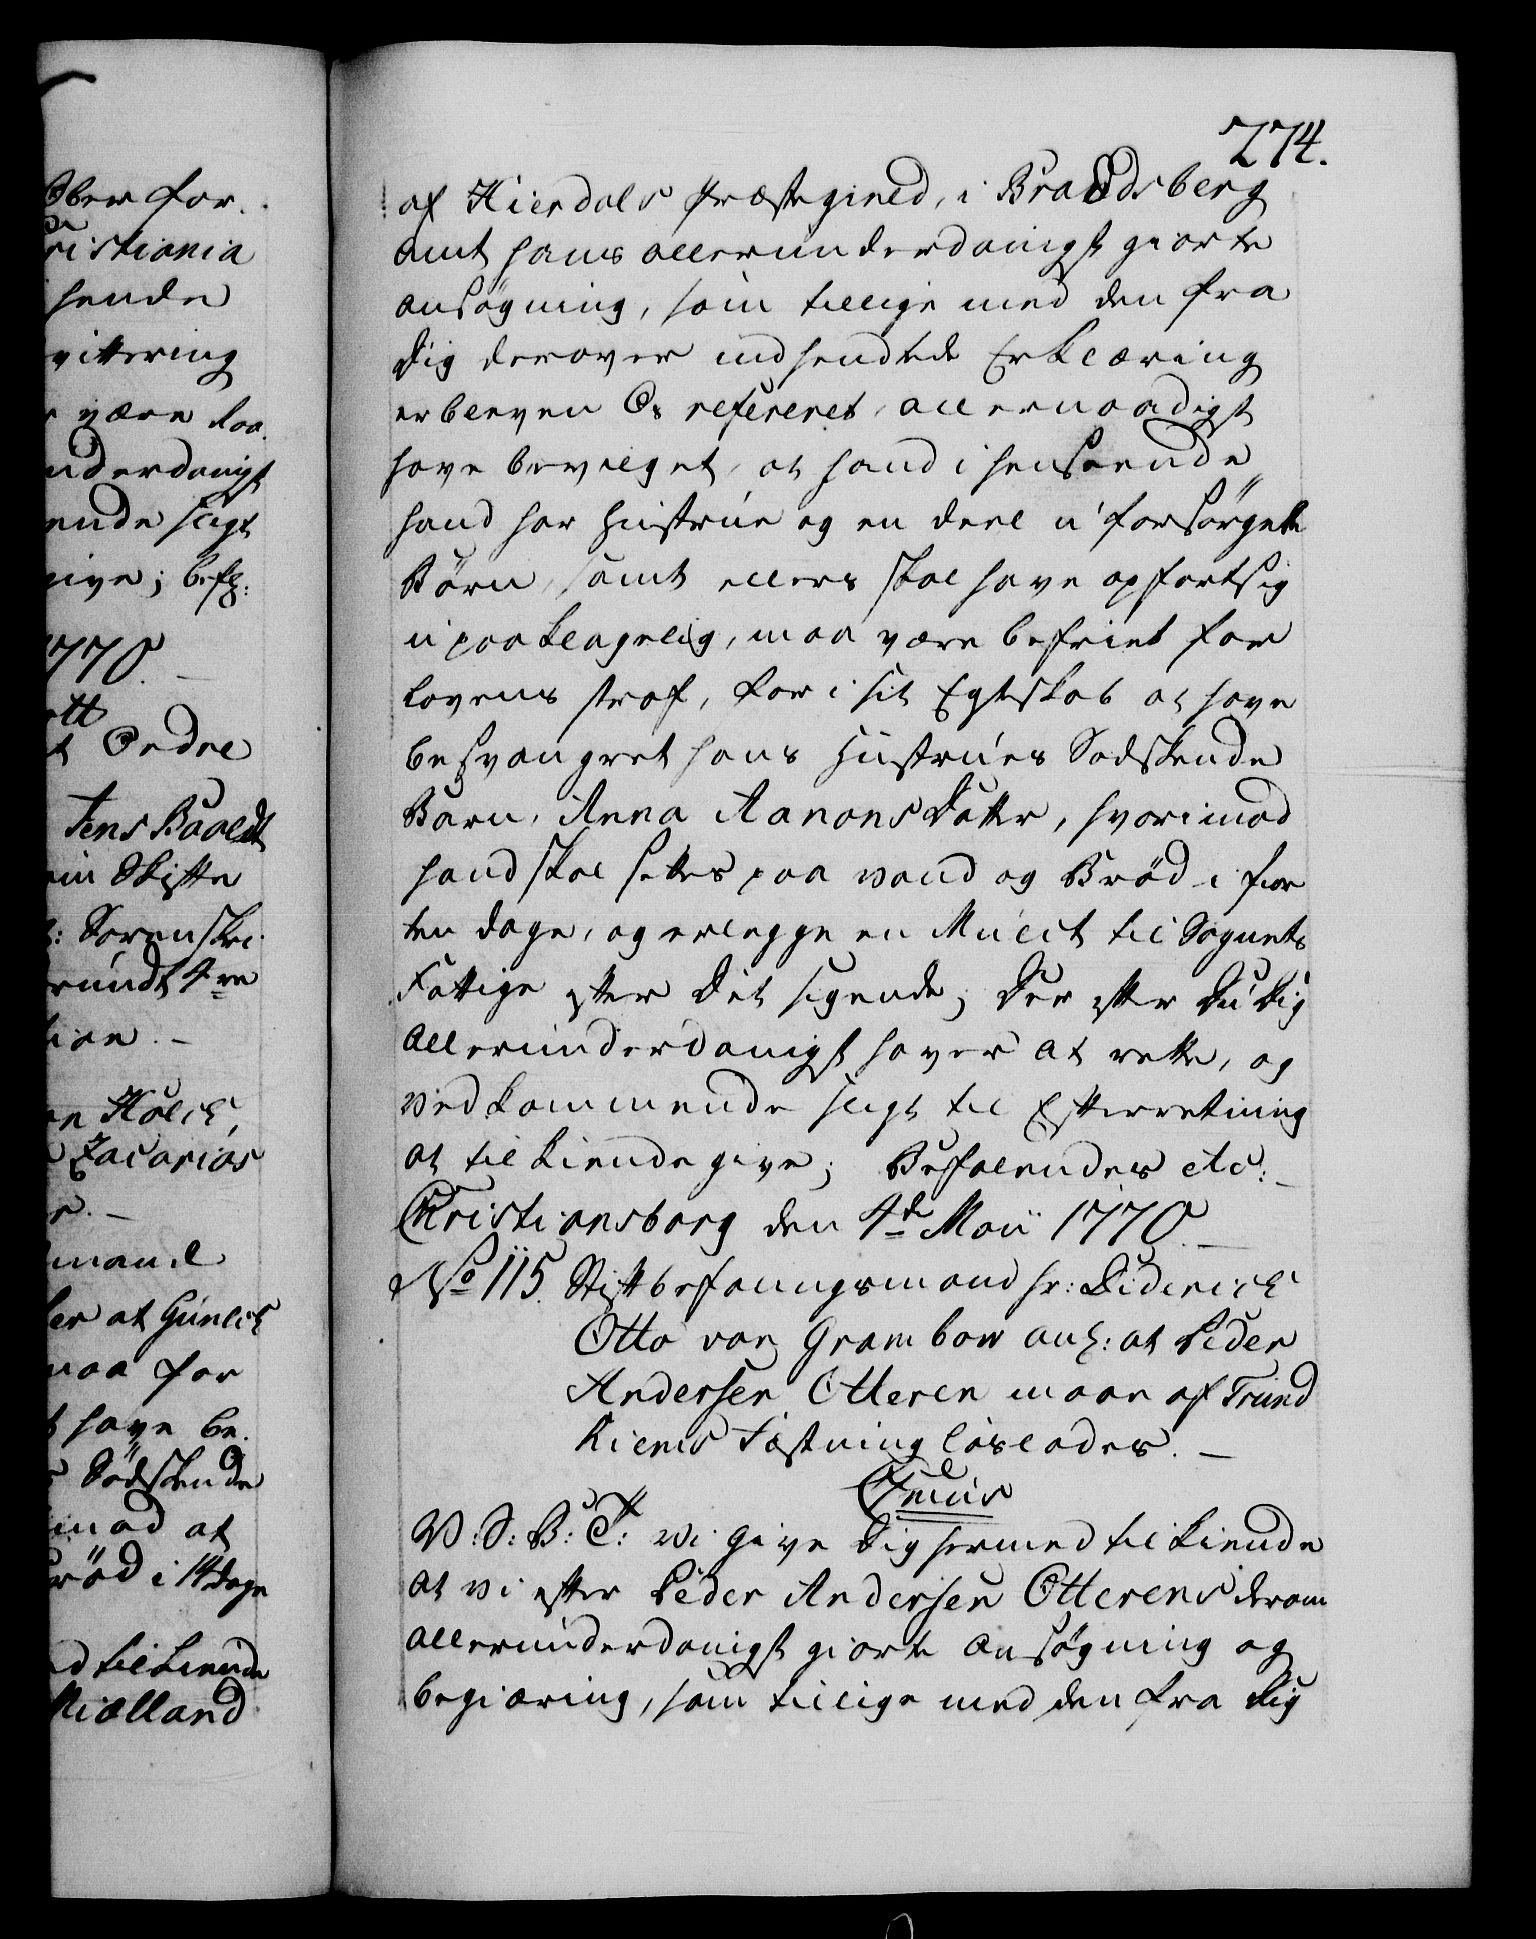 Ober for.
Cristiania
sende
vittering
være laa
underdanigst
ende sligt
give; befh:
1770.
ott
t Ordre
Jens Baaldt
Skifte
t: Sorenskri
rundt 4re
tion. -
Holck,
Zacarias
r. -
mand
er at Gunlich
maa for
t have be.
s Södskende
imod at
Bröd i 14 dage
ed tilkiende
Miølland
274.
af Hierdals Præstegield, i Bradsberg
amt hans allerunderdanigst giorte
ansøgning, som tillige med den fra
dig derover indsendte Erklæring
er bleven Os refereret, allernaadigst
have bevilget, at hand i henseende
hand har Hustrúe og en deel ú forsørgede
Börn, samt ellers skal have opført sig
úpaaklagelig, maa være befriet for
lovens straf, for i sit Egteskab at have
besvangret hans Hustrúes Sødskende
Barn, Anna Aanons Datter, hvorimod
hand skal settes paa vand og Bröd i fior
ten dage, og erlegge en Mulct til Sognets
Fattige efter Dit sigende; Der efter Dú Dig
allerunderdanigst haver at rette, og
vedkommende sligt til Efterretning
at tilkiendegive; Befalendes etc: -
Christiansborg den 4de Maii 1770. -
No 115. Stiftbefalingsmand hr: Diderich
Otto von Grambow anl: at Peder
Andersen Otteren maae af Trund
hiems Fæstning løslades. -
V: S: B: T: Vi give dig hermed tilkiende
at vi efter Peder Andersen Otterens derom
allerunderdanigst giorte Ansøgning og
begiæring, som tillige med den fra dig